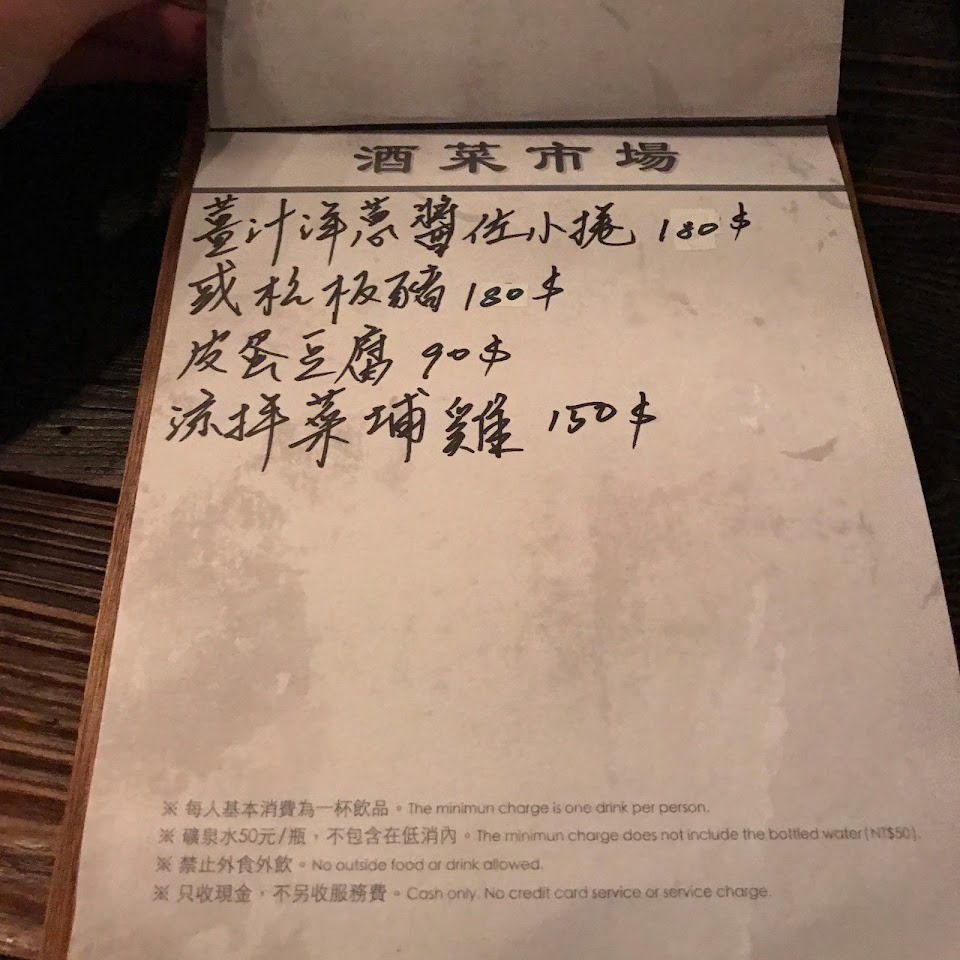 酒菜市場
薑汁洋蔥醬佐小捲 180$
或松板豬 180$
皮蛋豆腐 90$
涼拌菜埔雞 150$
※ 每人基本消費為一杯飲品。The minimun charge is one drink per person.
※ 礦泉水50元/瓶，不包含在低消內。The minimun charge does not include the bottled water(NT$50).
※ 禁止外食外飲。No outside food or drink allowed.
※ 只收現金，不另收服務費。Cash only. No credit card service or service charge.